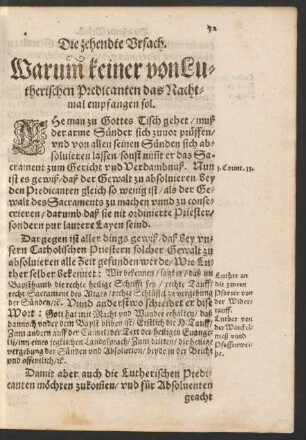 52
Die zehendte Vrsach.
Warum keiner von Lu-
therischen Predicanten das Nacht-
mal empfangen sol.
EHe man zu Gottes Tisch gehet / muß
der arme Sünder sich zuuor prüffen/
vnd von allen seinen Sünden sich ab-
soluieren lassen, sonst nüßt er das Sa-
crament zum Gericht vnd Verdambnuß. Nun
ist es gewiß / daß der Gewalt zu absoluieren bey
den Predicanten gleich so wenig ist / als der Ge-
walt des Sacraments zu machen vnnd zu conse-
crieren / darumb daß sie nit ordinierte Priester/
sondern pur lautere Layen seind.
1. Corint. 11.
Dargegen ist aller dings gewiß / daß bey vn-
sern Catholischen Priestern solcher Gewalt zu
absoluieren alle Zeit gefunden werde / Wie Lu-
ther selber bekennet: Wir bekennen / sagt er / daß im
Bapsthumb die rechte heilige Schrifft sey / rechte Tauff/
rechte Sacrament des Altars / rechte Schlüssel zu vergebung
der Sünden / ꝛc. Vnnd anderstwo schreibet er dise
Wort: Gott hat mit Macht vnd Wunder erhalten / daß
dannoch vnder dem Bapst bliben ist / Erstlich die H. Tauff/
Zum andern auff der Cantzel der Text des heiligen Euange-
lij / im eines jeglichen Landssprach / Zum dritten / die heilige
vergebung der Sünden vnd Absolution / beyde in der Beicht
vnd offentlich / ꝛc.
Luther an
die zween
Pfarrer von
der Wider
tauff.
Luther von
der Winckel-
meß vnnd
Pfaffenwei-
he.
Damit aber auch die Lutherischen Predi-
canten möchten zukom̃en / vnd für Absoluenten
geacht